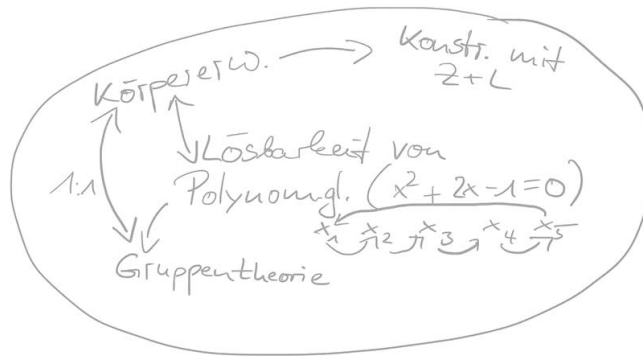 Körpererw.
Konstr. mit
Z+L
1:1
Lösbarkeit von
Polynomgl. (x² + 2x - 1 = 0)
x₁ x₂ x₃ x₄ x₅
Gruppentheorie